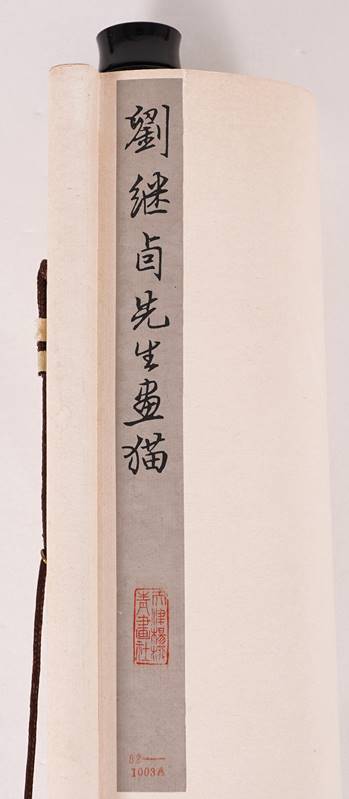 劉继卣先生画猫
天津楊柳
青畫社
82—
1003A